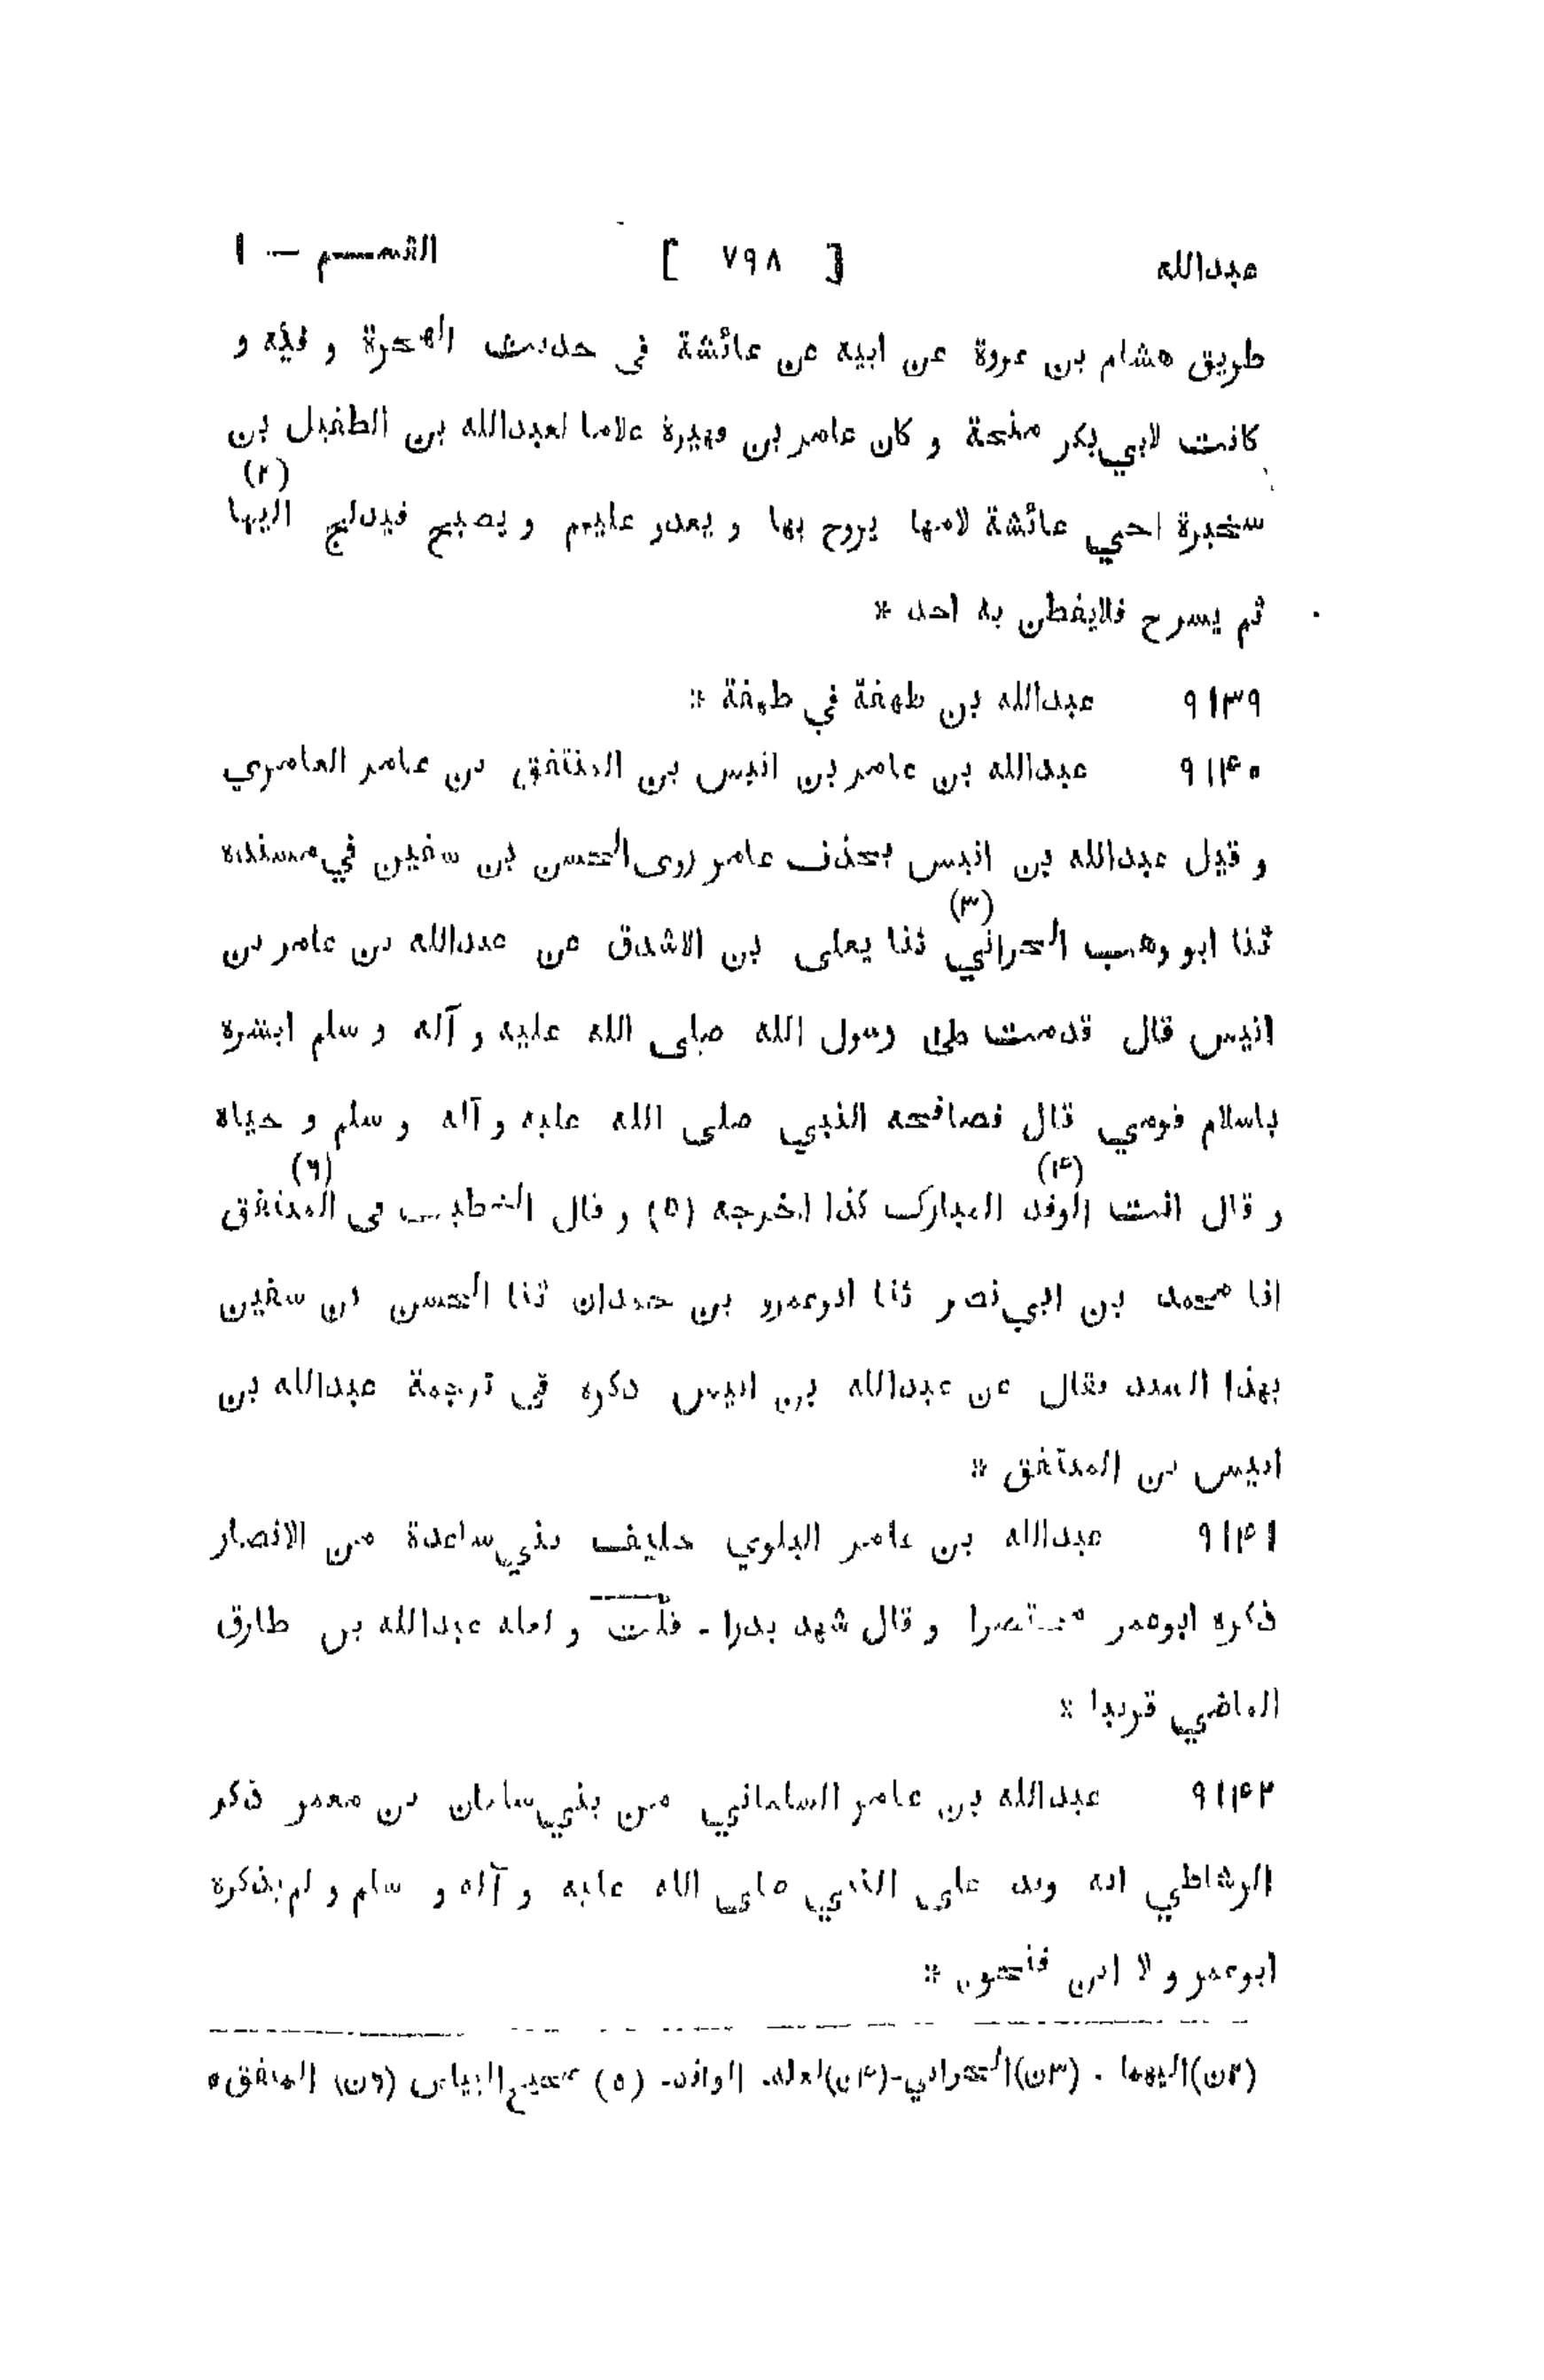 عبدالله [ ٧٩٨ ] القســـم — ١
طريق هشام بن عروة عن ابيه عن عائشة في حديث الهجرة و فيه و
كانت لابي بكر منحة و كان عامر بن فهيرة غلاما لعبدالله بن الطفيل بن
سخبرة اخي عائشة لامها يروح بها و يغدر عليهم و يصبح فيدلج اليها (٢)
ثم يسرح فلايفطن به احد *
٩١٣٩ عبدالله بن طهفة في طهفة *
٩١۴٠ عبدالله بن عامر بن انيس بن المنتفق بن عامر العامري
و قيل عبدالله بن انيس بحذف عامر روى الحسن بن سفين في مسنده
ثنا ابو وهب الحراني (٣) ثنا يعلى بن الاشدق عن عبدالله بن عامر بن
انيس قال قدمت على رسول الله صلى الله عليه و آله و سلم ابشره
باسلام قومي قال فصافحه النبي صلى الله عليه و آله و سلم و حياه
و قال انت الوفد (۴) المبارك كذا اخرجه (٥) و قال الخطيب في المتفق (٦)
انا محمد بن ابي نصر ثنا ابوعمرو بن حمدان ثنا الحسن بن سفين
بهذا السند فقال عن عبدالله بن انيس ذكره في ترجمة عبدالله بن
انيس بن المنتفق *
٩١۴١ عبدالله بن عامر البلوي حليف بني ساعدة من الانصار
ذكره ابوعمر مختصرا و قال شهد بدرا - قلت و لعله عبدالله بن طارق
الماضي قريبا *
٩١۴٢ عبدالله بن عامر السلماني من بني سلمان بن معمر ذكر
الرشاطي انه وفد على النبي صلى الله عليه و آله و سلم و لم يذكره
ابوعمر و لا ابن فتحون *
(٢ن) اليهما - (٣ن) الحراني - (۴ن) لعله الوافد - (٥) صحيح البياض (٦ن) المتفق *